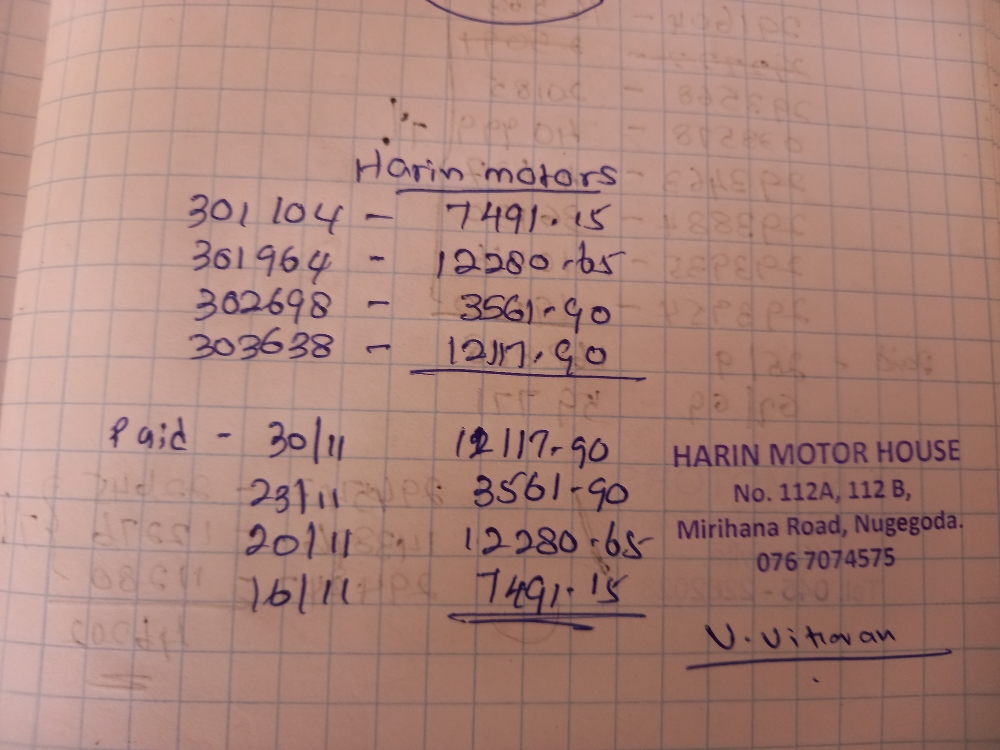 Harin motors
301104 - 7491.15
301964 - 12280.65
302698 - 3561-90
303638 - 12117.90
Paid - 30/11 12117-90
23/11 3561-90
20/11 12280.65
16/11 7491.15
HARIN MOTOR HOUSE
No. 112A, 112 B,
Mirihana Road, Nugegoda.
076 7074575